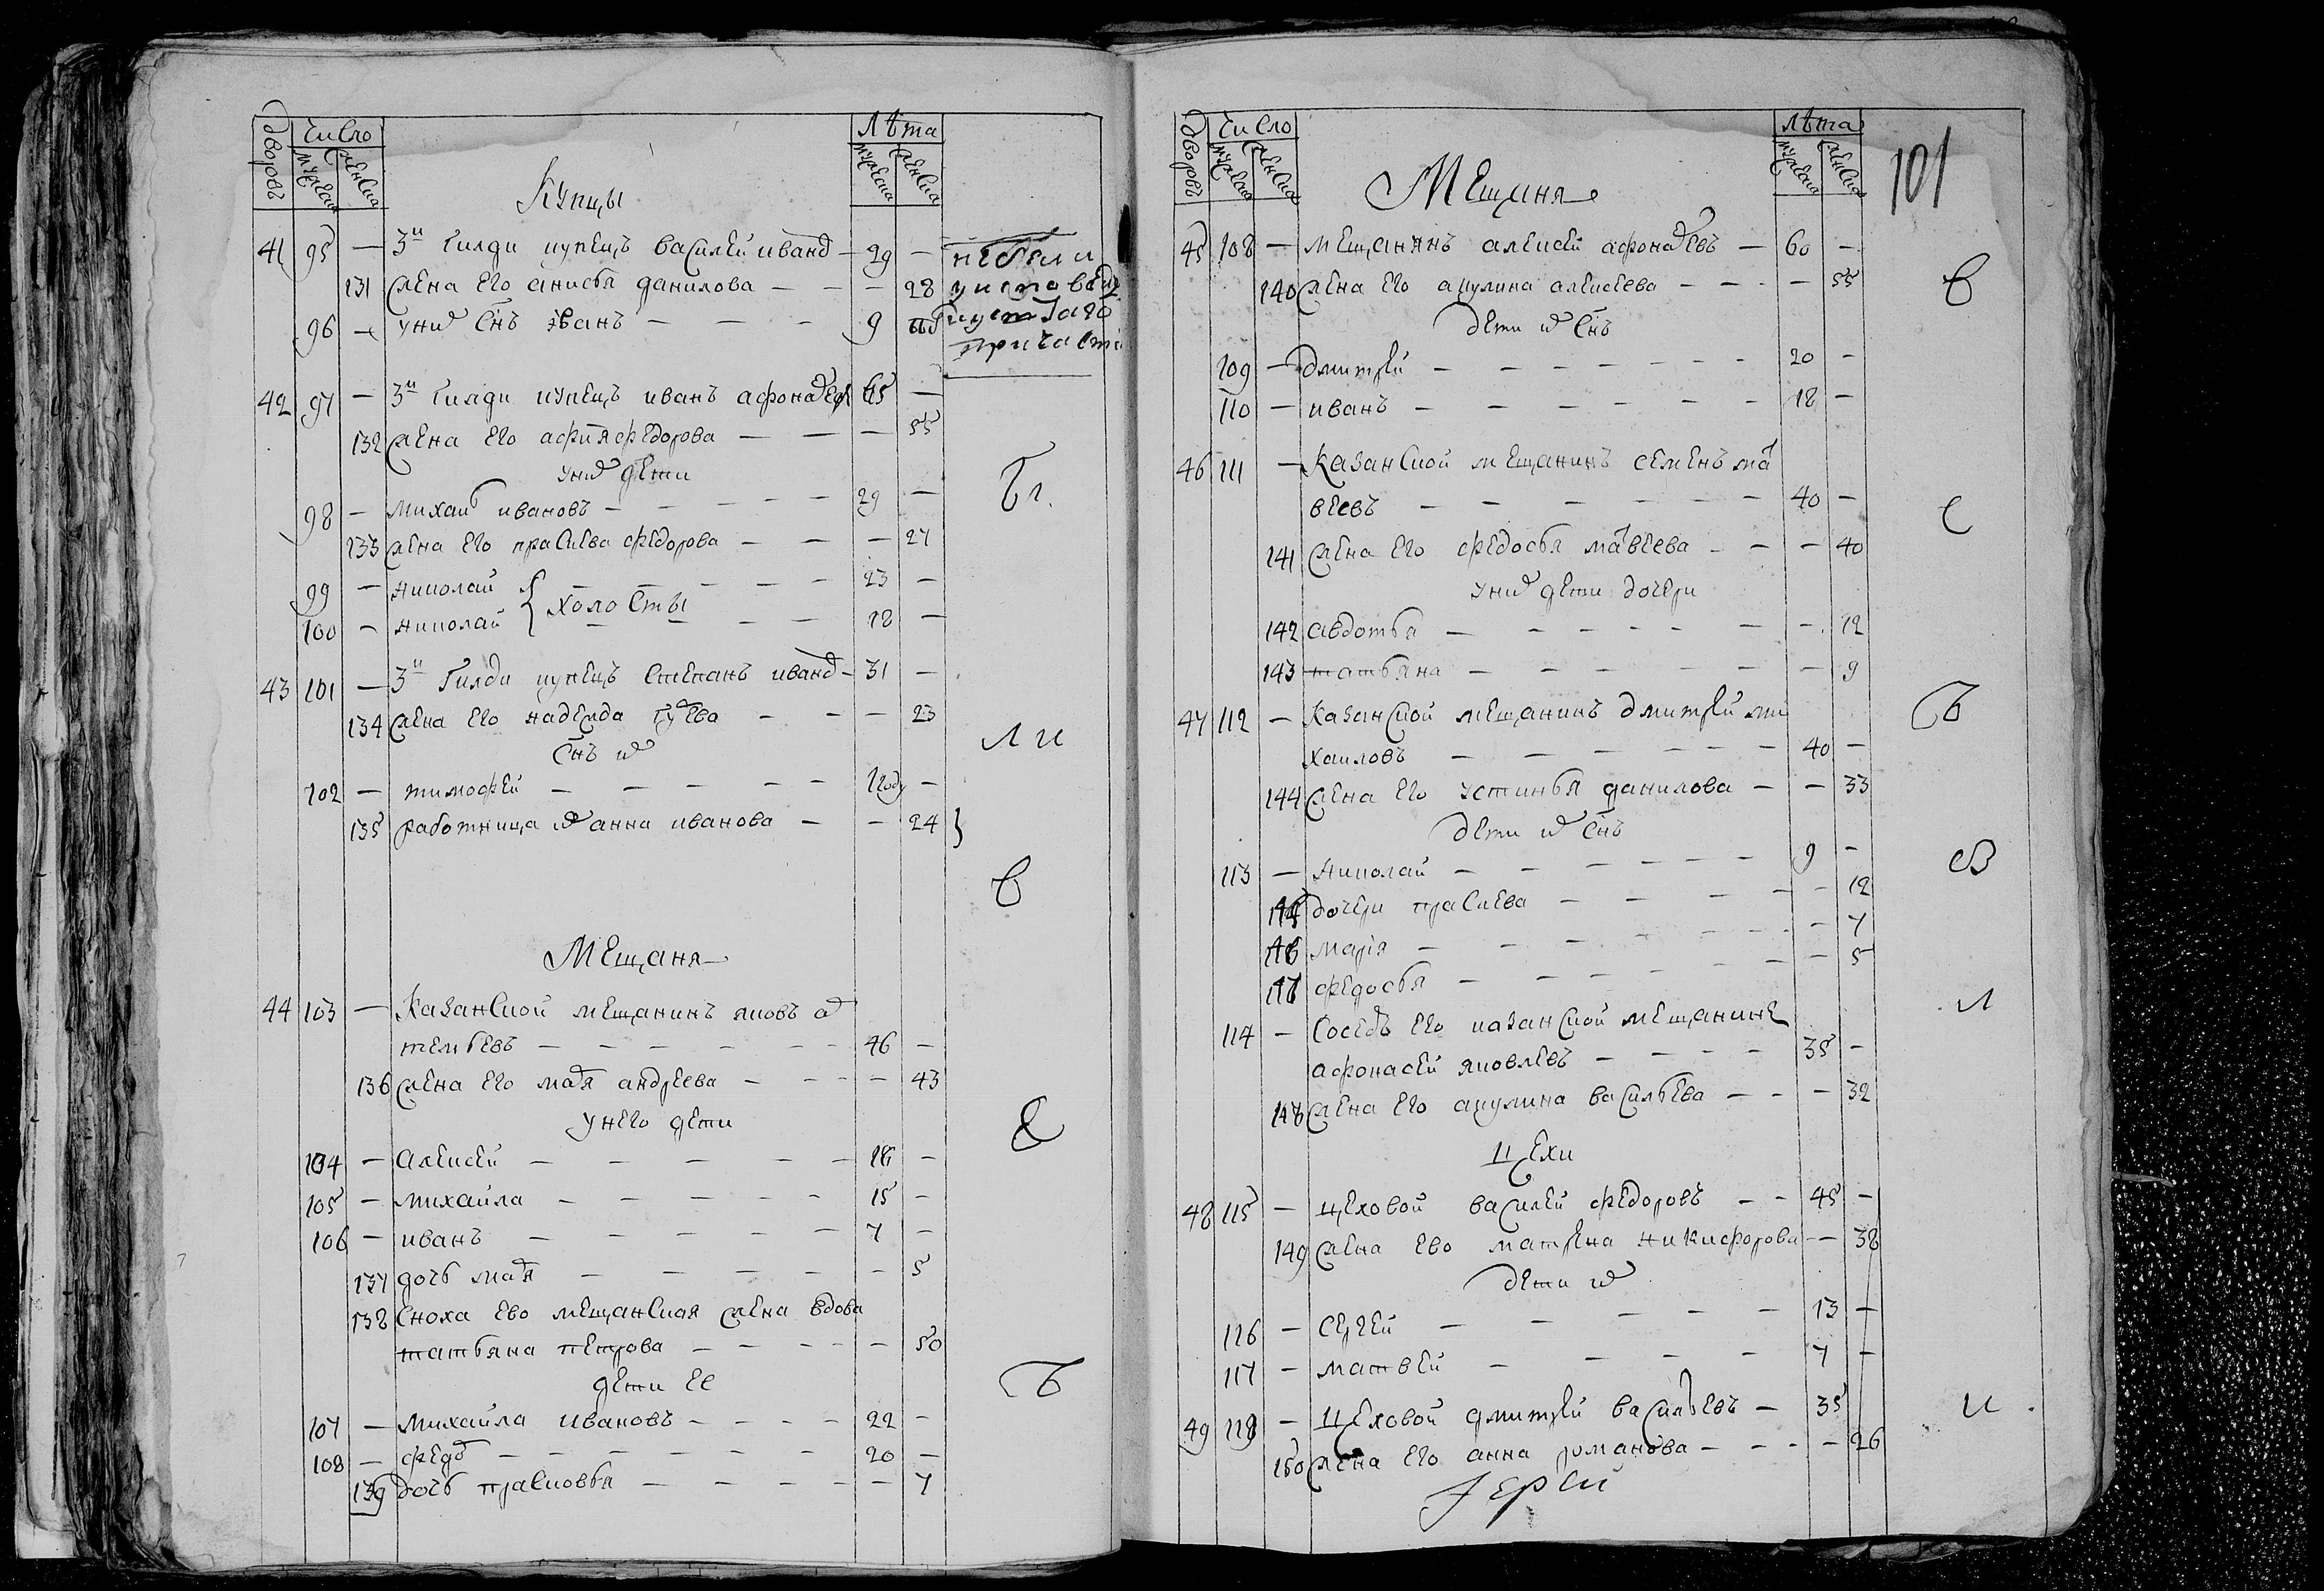 дворовъ
число
мужеска
женска
Купцы
лѣта
мужеска
женска
41 95 — 3й гилди купецъ василей иванов — 29 —
131 жена его анисья данилова — — — 28
96 — у них снъ иванъ — — — 9
небыли
у исповеди
и у стаго
причасти
42 97 — 3й гилди купецъ иванъ афонасеф 65 —
132 жена его афимя федорова — — — 55
у них дети
98 — михаил ивановъ — — — — 29 —
133 жена его праскева федорова — — — 27
99 — николай — — — — — 23 —
холосты
100 — николай — — — — 18 —
бл.
43 101 — 3й гилди купецъ степанъ иванов — 31 —
134 жена его надежда — — — 23
снъ их
102 — тимофей — — — — — 1 году —
135 работница их анна иванова — — 24
ли
в
Мещаня
44 103 — казанской мещанинъ яковъ ар
темьевъ — — — — — — 46 —
136 жена его маря андреева — — — — 43
у него дети
104 — алексей — — — — — 18 —
105 — михайла — — — — — 15 —
106 — иванъ — — — — — 7 —
137 дочь маря — — — — — — 5
138 сноха ево мещанская жена вдова
татьяна петрова — — — — — 50
дети ее
107 — михайла ивановъ — — — — 22 —
108 — федор — — — — — — 20 —
139 дочь прасковья — — — — — 7
ь
101
дворовъ
число
мужеска
женска
Мещаня
лѣта
мужеска
женска
45 108 — мещанинъ алексей афонасевъ — 60 —
140 жена его акулина алексеева — — — — 55
дети их снъ
109 — дмитрей — — — — — — 20 —
110 — иванъ — — — — — — 18 —
в
46 111 — казанской мещанинъ семенъ мат
веевъ — — — — — — 40 —
141 жена его федосья матвеева — — — 40
у них дети дочери
142 авдотья — — — — — — — 12
143 татьяна — — — — — — — 9
с
47 112 — казанской мещанинъ дмитрей ми
хаиловъ — — — — — — 40 —
144 жена его устинья данилова — — 33
дети их снъ
113 — николай — — — — — — 9 —
дочери праскева — — — — — 12
марія — — — — — — 7
федосья — — — — — — 5
114 — соседъ его казанской мещанинъ
афонасей яковлевъ — — — — 35 —
148 жена его акулина васильева — — — 32
ь
в
л
Цехи
48 115 — цеховой василей федоровъ — — 45 —
149 жена ево матрена никифорова — — 38
дети их
116 — сергей — — — — 13 —
117 — матвей — — — — 7 —
49 118 — цеховой дмитрей васильевъ — 35
150 жена его анна романова — — — — 26
и
Іерей